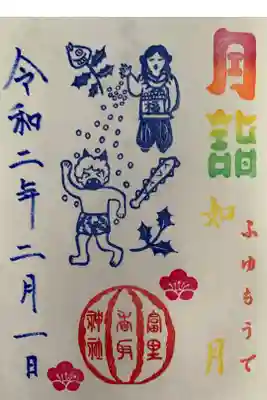 月詣
如月
ふゆもうで
富里
香取
神社
令和二年二月一日